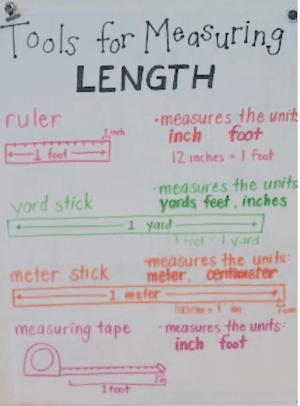 Tools for Measuring
LENGTH
ruler
1 inch
1 foot
•measures the unit
inch foot
12 inches = 1 foot
yard stick
•measures the units
yards, feet, inches
1 yard
3 feet = 1 yard
meter stick
•measures the units:
meter, centimeter
1 meter
100cm = 1 m
measuring tape
•measures the units:
inch foot
1 foot